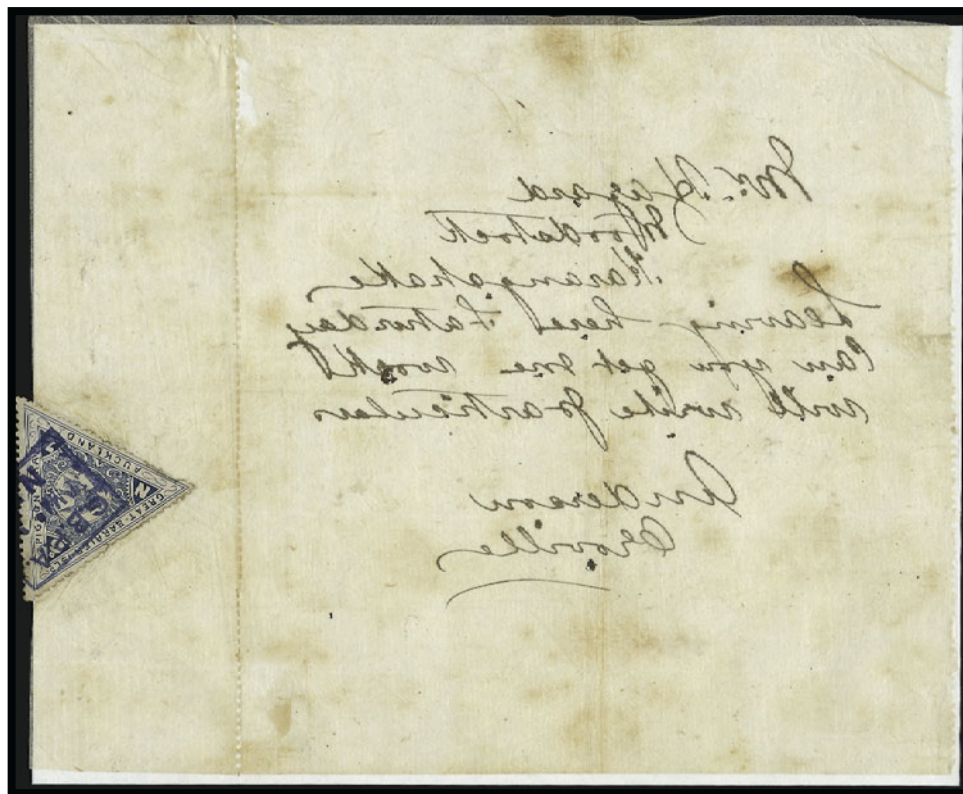 Mr. Hazard
Woodstock
Karangahake
Leaving here Saturday
Can you get me work
will write particulars
Anderson
Oroville
GREAT BARRIER ISLD
AUCKLAND
PIGEON